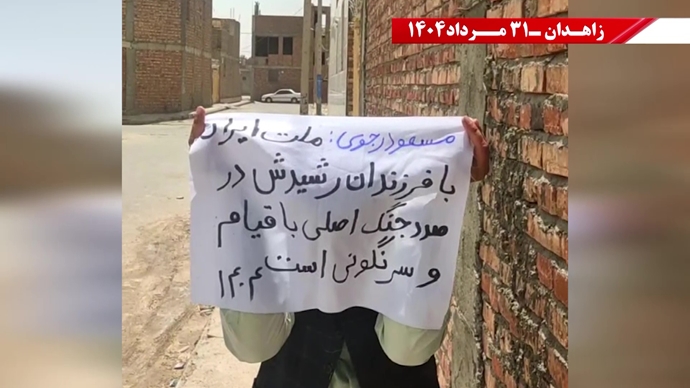 زاهدان ـ ۳۱ مــرداد ۱۴۰۴
مسعود رجوی: ملت ایران
با فرزندان رشیدش در
صدد جنگ اصلی با قیام
و سرنگونی است ۱۴۰۴